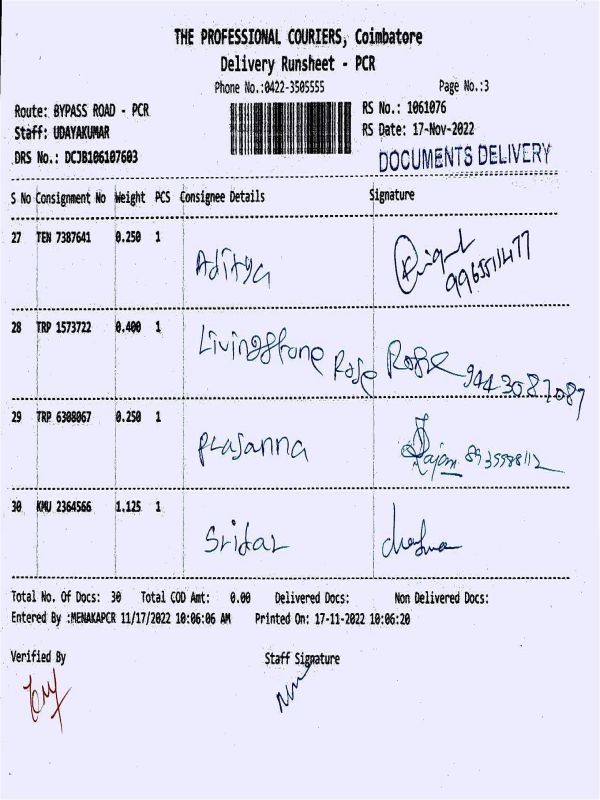 THE PROFESSIONAL COURIERS, Coimbatore
Delivery Runsheet - PCR
Phone No.:0422-3505555 Page No.:3
Route: BYPASS ROAD - PCR RS No.: 1061076
Staff: UDAYAKUMAR RS Date: 17-Nov-2022
DRS No.: DCJB106107603 DOCUMENTS DELIVERY
S No Consignment No Weight PCS Consignee Details Signature
27 TEN 7387641 0.250 1 Aditya
28 TRP 1573722 0.400 1 Livingstone Rose Rose 9443087087
29 TRP 6308067 0.250 1 Prasanna Rajam
30 KMU 2364566 1.125 1 Sridar
Total No. Of Docs: 30 Total COD Amt: 0.00 Delivered Docs: Non Delivered Docs:
Entered By :MENAKAPCR 11/17/2022 10:06:06 AM Printed On: 17-11-2022 10:06:20
Verified By Staff Signature